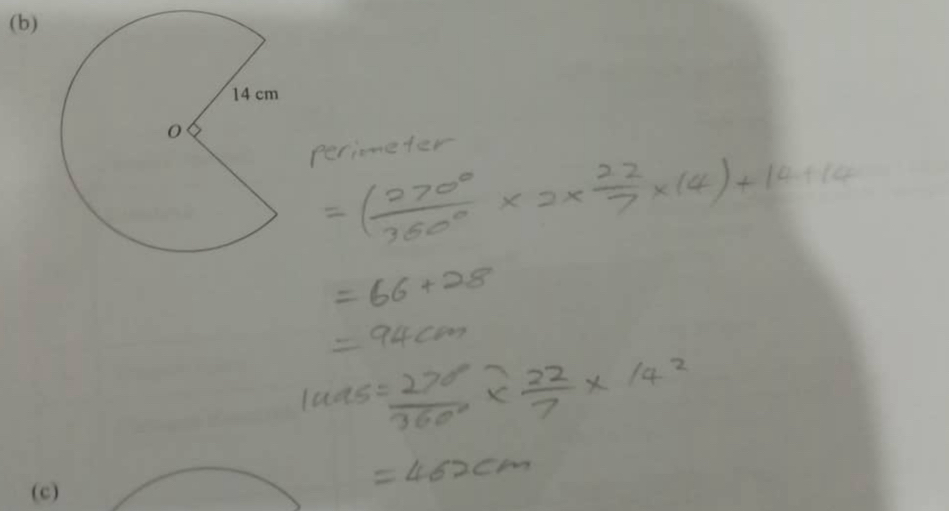 (b)
14 cm
O
perimeter
= (270°/360° × 2 × 22/7 × 14) + 14 + 14
= 66 + 28
= 94 cm
luas = 270°/360° × 22/7 × 14²
= 462 cm
(c)